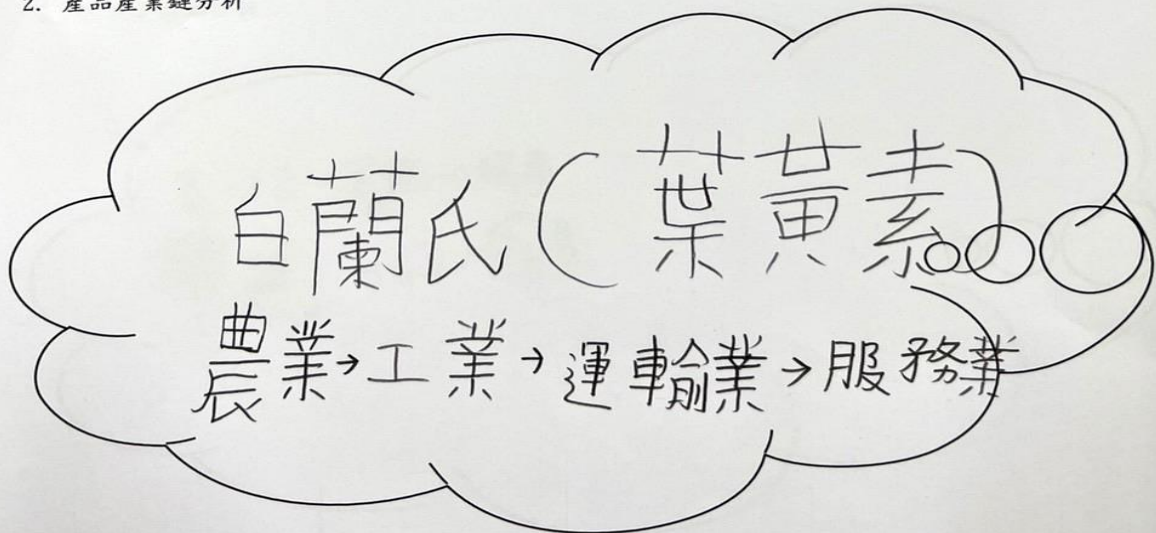 2. 產品產業鏈分析
白蘭氏(葉黃素)
農業→工業→運輸業→服務業